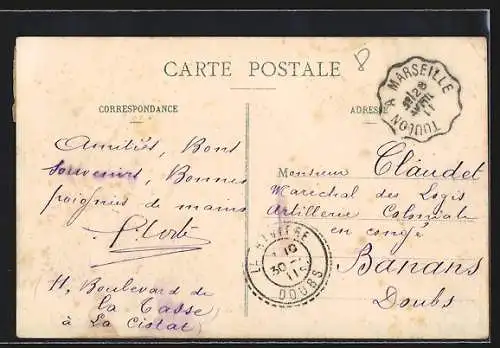 CARTE POSTALE
CORRESPONDANCE
ADRESSE
TOULON A MARSEILLE
Amitiés, Bons
Souvenirs, Bonnes
poignées de mains
(11, Boulevard de
la Tasse)
à La Ciotat)
Monsieur Claudet
Maréchal des Logis
Artillerie Coloniale
en congé
Banans
Doubs
LA RIVIÈRE
10
30
11
DOUBS